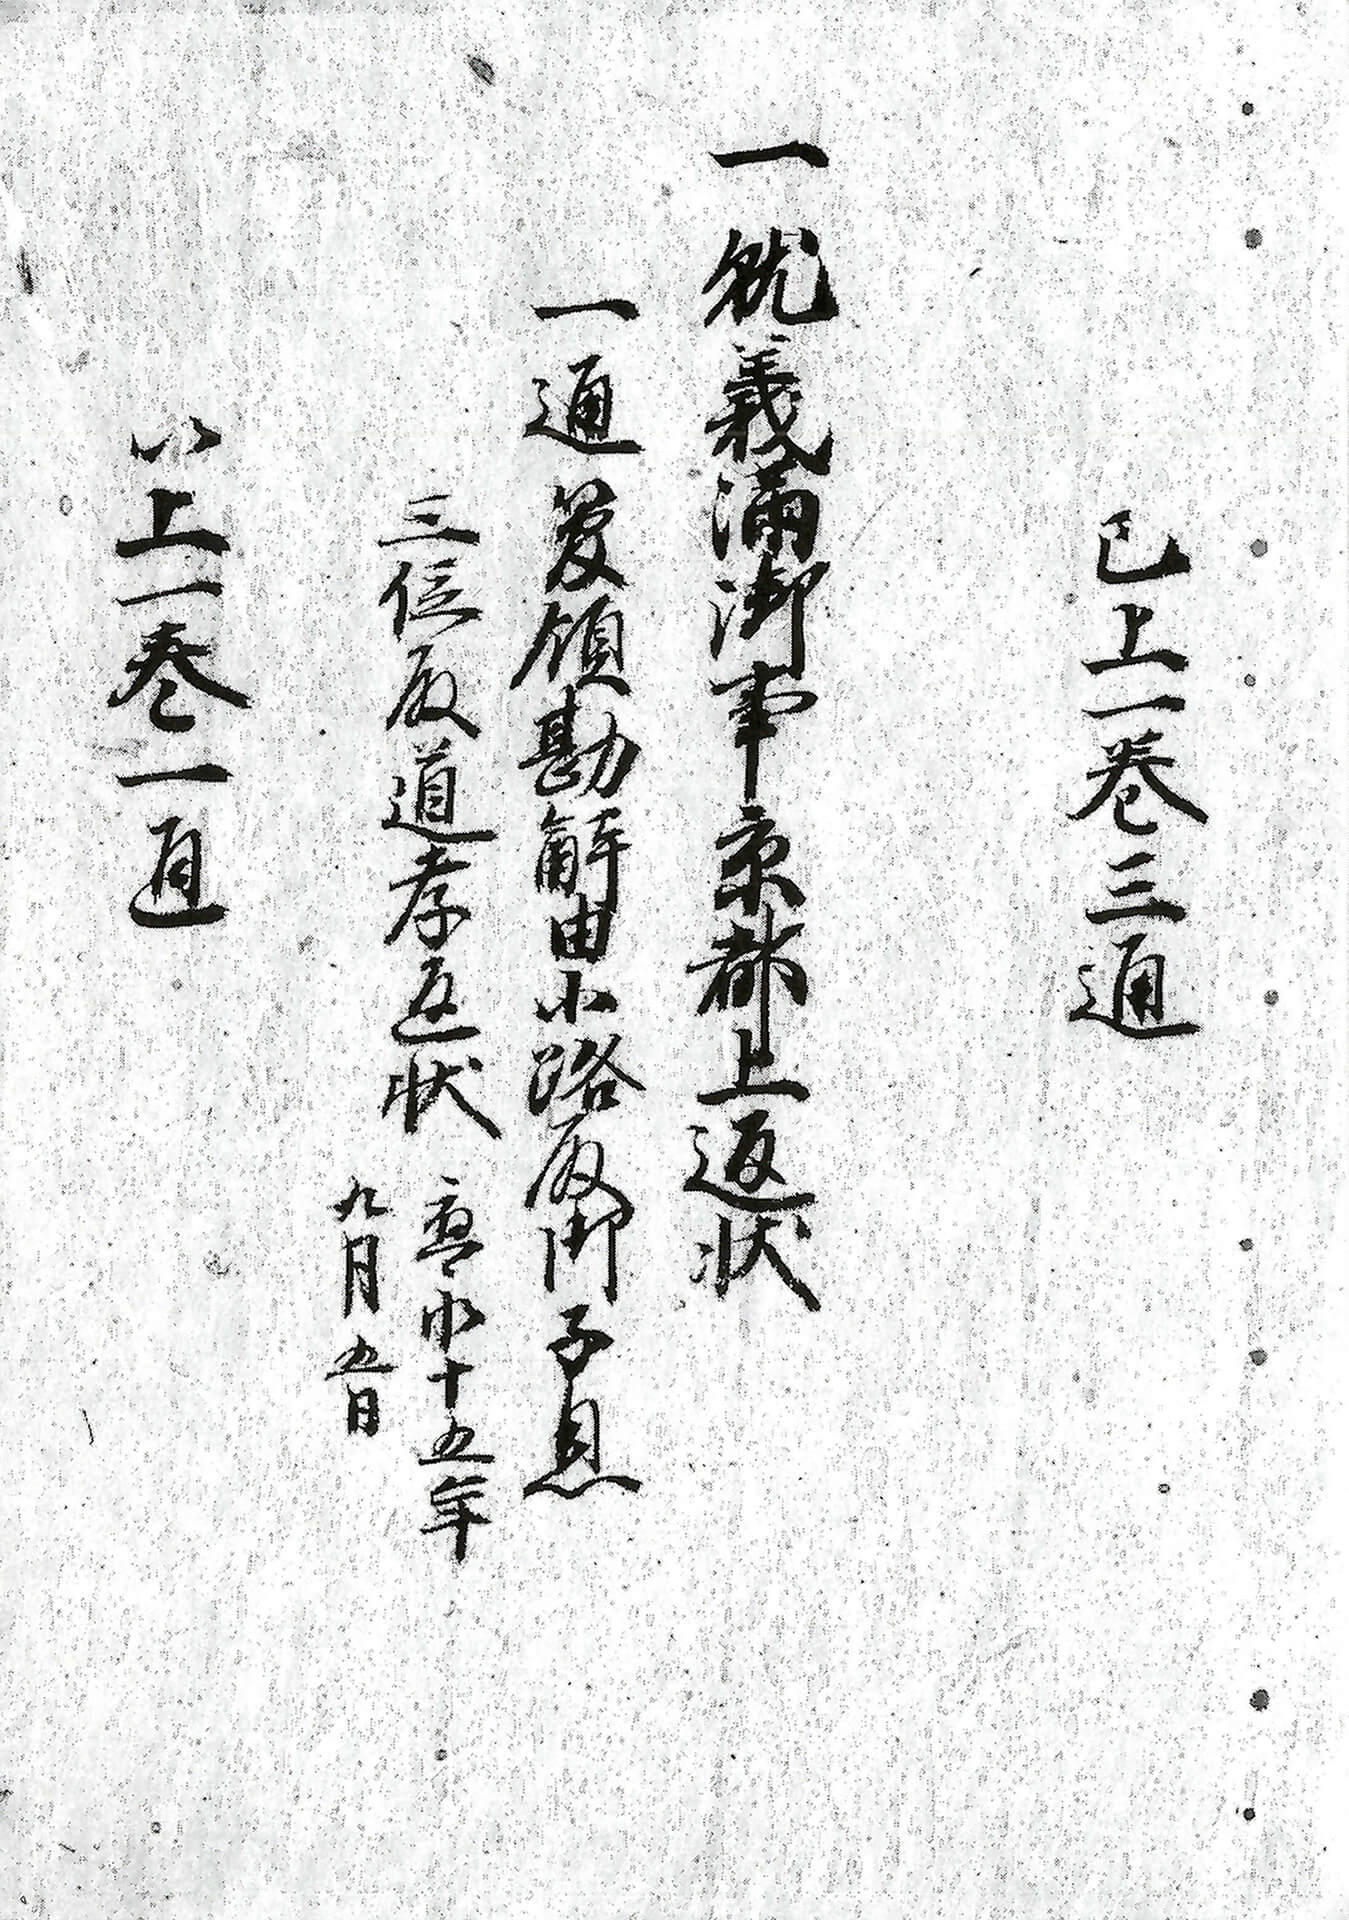 已上一巻三通
一就義満御事京都上返状
一通管領勘解由小路殿御子息
三位殿道孝返状
応永十五年
九月五日
以上一巻一通